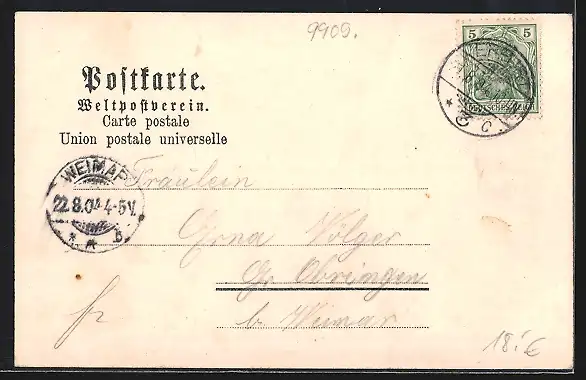 9909.
5 5
DEUTSCHES REICH
Postkarte.
Weltpostverein.
Carte postale
Union postale universelle
WEIMAR
22.8.04 4-5V.
* * b
Fräulein
Erna Völger
Gr. Obringen
b. Weimar
fr
18.-€